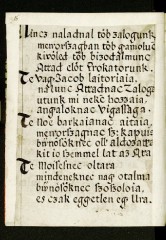 Nincz naladnal tob zalogunk
menyorszagban tob gamolunk
kivoled tob bizodalmunk
Attad elot frokatorunk.
Te vag Jacob laitoriaia,
Attadnac Zaloga
utunk mi neke hozzaia,
angialoknac vigassaga.
Te Noe barkaianac aitaia,
menyorszagnac kapuia
bwnösöknec
kit io semmel lat az Atia
Te Moisesnec oltara,
mindeneknec nag otalma
bwnösöknec szoszoloia,
es czak eggetlen eg Ura.